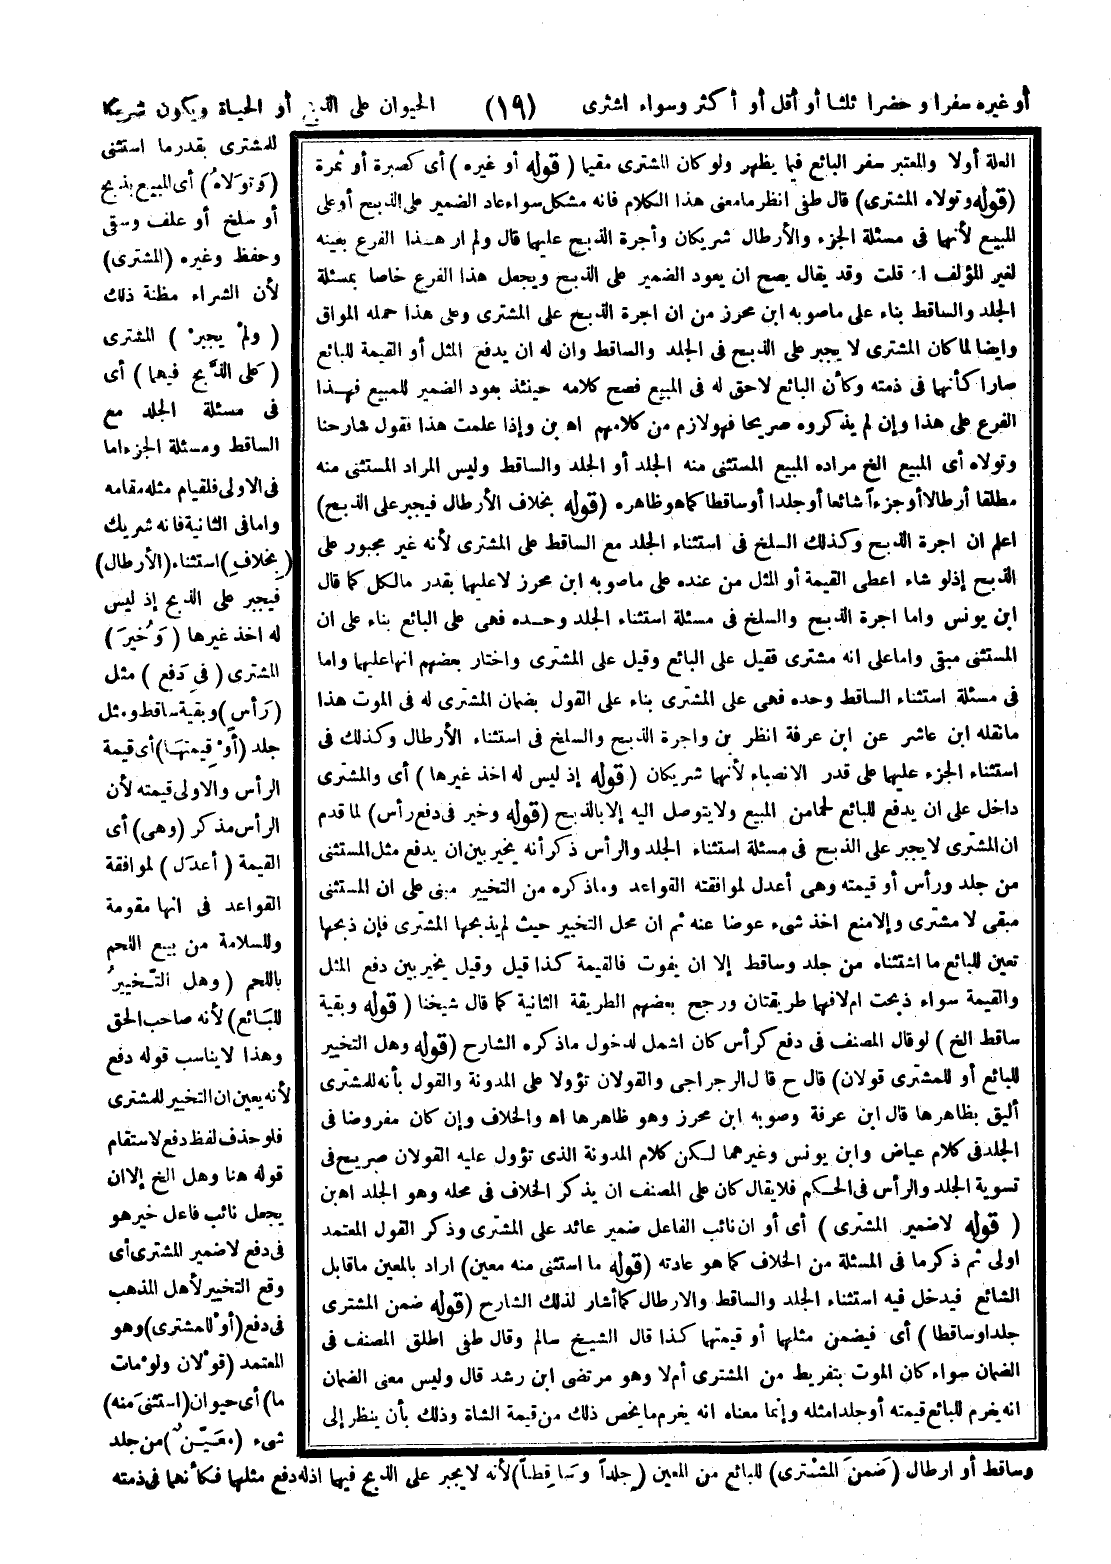 أو غيره سفرا و حضرا ثلثا أو أقل أو أكثر وسواء اشترى (١٩) الحيوان على الذبح أو الحياة ويكون شريكا
للمشترى بقدر ما استثنى
(وَتولاهُ) أى المبيع بذبح
أو سلخ أو علف وسقى
وحفظ وغيره (المشترى)
لأن الشراء مظنة ذلك
(ولمْ يجبرْ) المشترى
(على الذَّبح فيهما) أى
فى مسئلة الجلد مع
الساقط ومسئلة الجزء اما
فى الاولى فلقيام مثله مقامه
واما فى الثانية فانه شريك
(بخلافِ) استثناء (الأرطال)
فيجبر على الذبح إذ ليس
له اخذ غيرها (وَخُيرَ)
المشترى (فى دَفع) مثل
(رَأس) وبقية ساقط ومثل
جلد (أوْ قِيمتهَا) أى قيمة
الرأس والاولى قيمته لأن
الرأس مذكر (وهى) أى
القيمة (أعدَل) لموافقة
القواعد فى انها مقومة
وللسلامة من بيع اللحم
باللحم (وهل التَّخييرُ
للبَائع) لأنه صاحب الحق
وهذا لا يناسب قوله دفع
لأنه يعين ان التخيير للمشترى
فلو حذف لفظ دفع لاستقام
قوله هنا وهل الخ إلا ان
يجعل نائب فاعل خير هو
فى دفع لا ضمير المشترى أى
وقع التخيير لأهل المذهب
فى دفع (أوْ للمشترى) وهو
المعتمد (قوْلان ولوْ مات
ما) أى حيوان (استثنىَ منه)
شىء (معَيّنٌ) من جلد
العلة أولا والمعتبر سفر البائع فيما يظهر ولو كان المشترى مقيما (قوله أو غيره) أى كصبرة أو ثمرة
(قوله وتولاه المشترى) قال طفى انظر ما معنى هذا الكلام فانه مشكل سواء عاد الضمير على الذبح أو على
المبيع لأنهما فى مسئلة الجزء والأرطال شريكان وأجرة الذبح عليهما قال ولم ار هذا الفرع بعينه
لغير المؤلف اه قلت وقد يقال يصح ان يعود الضمير على الذبح ويجعل هذا الفرع خاصا بمسئلة
الجلد والساقط بناء على ماصوبه ابن محرز من ان اجرة الذبح على المشترى وعلى هذا حمله المواق
وايضا لما كان المشترى لا يجبر على الذبح فى الجلد والساقط وان له ان يدفع المثل أو القيمة للبائع
صارا كأنهما فى ذمته وكأن البائع لاحق له فى المبيع فصح كلامه حينئذ بعود الضمير للمبيع فهذا
الفرع على هذا وإن لم يذكروه صريحا فهو لازم من كلامهم اه بن وإذا علمت هذا فقول شارحنا
وتولاه أى المبيع الخ مراده المبيع المستثنى منه الجلد أو الجلد والساقط وليس المراد المستثنى منه
مطلقا أرطالا أو جزءاً شائعا أو جلدا أو ساقطا كما هو ظاهره (قوله بخلاف الأرطال فيجبر على الذبح)
اعلم ان اجرة الذبح وكذلك السلخ فى استثناء الجلد مع الساقط على المشترى لأنه غير مجبور على
الذبح إذ لو شاء اعطى القيمة أو المثل من عنده على ماصوبه ابن محرز لا عليهما بقدر مالكل كما قال
ابن يونس واما اجرة الذبح والسلخ فى مسئلة استثناء الجلد وحده فهى على البائع بناء على ان
المستثنى مبقى واما على انه مشترى فقيل على البائع وقيل على المشترى واختار بعضهم انها عليهما واما
فى مسئلة استثناء الساقط وحده فهى على المشترى بناء على القول بضمان المشترى له فى الموت هذا
مانقله ابن عاشر عن ابن عرفة انظر بن واجرة الذبح والسلخ فى استثناء الأرطال وكذلك فى
استثناء الجزء عليهما على قدر الانصباء لأنهما شريكان (قوله إذ ليس له اخذ غيرها) أى والمشترى
داخل على ان يدفع للبائع لحما من المبيع ولا يتوصل اليه إلا بالذبح (قوله وخير فى دفع رأس) لما قدم
ان المشترى لا يجبر على الذبح فى مسئلة استثناء الجلد والرأس ذكر أنه يخير بين ان يدفع مثل المستثنى
من جلد ورأس أو قيمته وهى أعدل لموافقته القواعد وماذكره من التخيير مبنى على ان المستثنى
مبقى لا مشترى وإلا منع اخذ شىء عوضا عنه ثم ان محل التخيير حيث لم يذبحها المشترى فإن ذبحها
تعين للبائع ما اشتثناه من جلد وساقط إلا ان يفوت فالقيمة كذا قيل وقيل يخير بين دفع المثل
والقيمة سواء ذبحت ام لا فهما طريقتان ورجح بعضهم الطريقة الثانية كما قال شيخنا (قوله وبقية
ساقط الخ) لو قال المصنف فى دفع كرأس كان اشمل لدخول ماذكره الشارح (قوله وهل التخيير
للبائع أو للمشترى قولان) قال ح قال الرجراجى والقولان تؤولا على المدونة والقول بأنه للمشترى
أليق بظاهرها قال ابن عرفة وصوبه ابن محرز وهو ظاهرها اه والخلاف وإن كان مفروضا فى
الجلد فى كلام عياض وابن يونس وغيرهما لكن كلام المدونة الذى تؤول عليه القولان صريح فى
تسوية الجلد والرأس فى الحكم فلا يقال كان على المصنف ان يذكر الخلاف فى محله وهو الجلد اه بن
(قوله لا ضمير المشترى) أى أو ان نائب الفاعل ضمير عائد على المشترى وذكر القول المعتمد
اولى ثم ذكر ما فى المسئلة من الخلاف كما هو عادته (قوله ما استثنى منه معين) اراد بالمعين ماقابل
الشائع فيدخل فيه استثناء الجلد والساقط والارطال كما أشار لذلك الشارح (قوله ضمن المشترى
جلدا وساقطا) أى فيضمن مثلهما أو قيمتهما كذا قال الشيخ سالم وقال طفى اطلق المصنف فى
الضمان سواء كان الموت بتفريط من المشترى أم لا وهو مرتضى ابن رشد قال وليس معنى الضمان
انه يغرم للبائع قيمته أو جلدا مثله وإنما معناه انه يغرم ما يخص ذلك من قيمة الشاة وذلك بأن ينظر إلى
وساقط أو ارطال (ضَمنَ المشْترى) للبائع من المعين (جلداً وسَاقِطاً) لأنه لا يجبر على الذبح فيهما اذ له دفع مثلهما فكأنهما فى ذمته